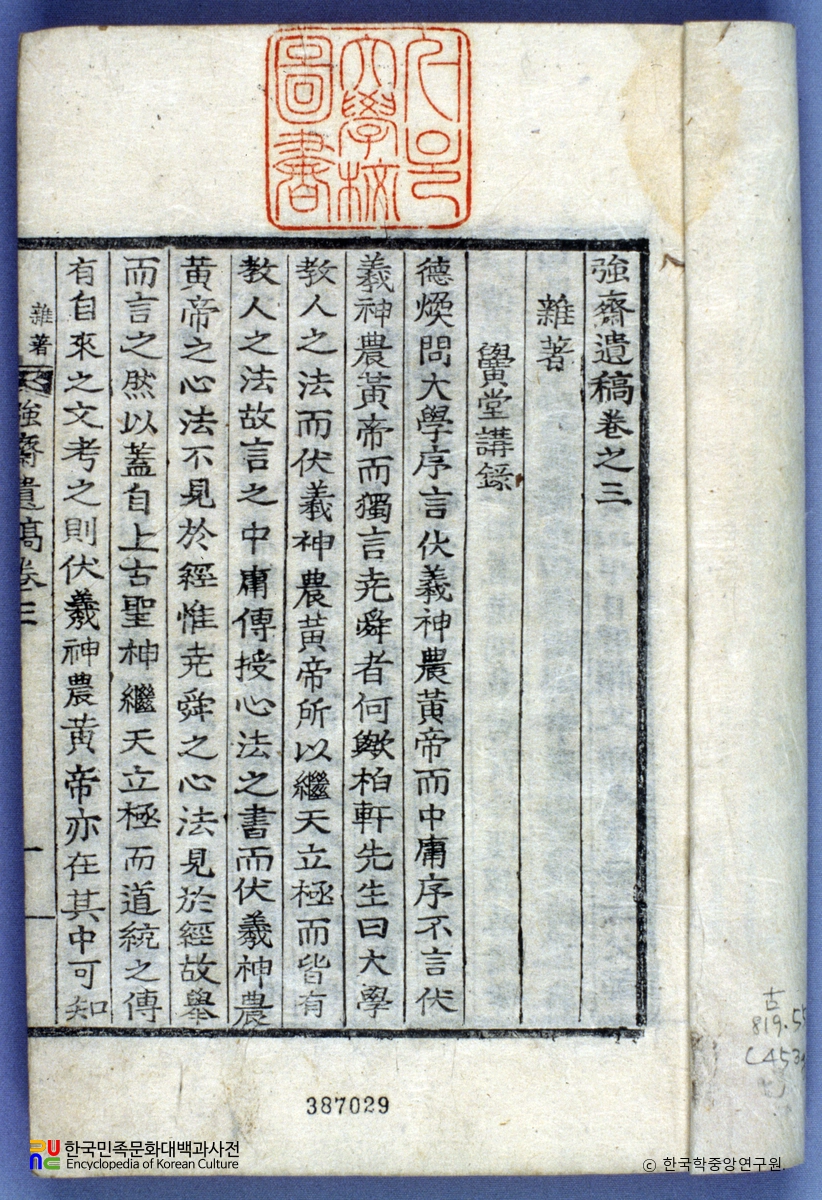 서울
大學校
圖書
強齋遺稿卷之三
雜著
黌堂講錄
德煥問大學序言伏羲神農黃帝而中庸序不言伏
羲神農黃帝而獨言堯舜者何歟柏軒先生曰大學
教人之法而伏羲神農黃帝所以繼天立極而皆有
教人之法故言之中庸傳授心法之書而伏羲神農
黃帝之心法不見於經惟堯舜之心法見於經故擧
而言之然以蓋自上古聖神繼天立極而道統之傳
有自來之文考之則伏羲神農黃帝亦在其中可知
雜著
強齋遺稿卷三
一
古
819.55
387029
한국민족문화대백과사전
Encyclopedia of Korean Culture
ⓒ 한국학중앙연구원